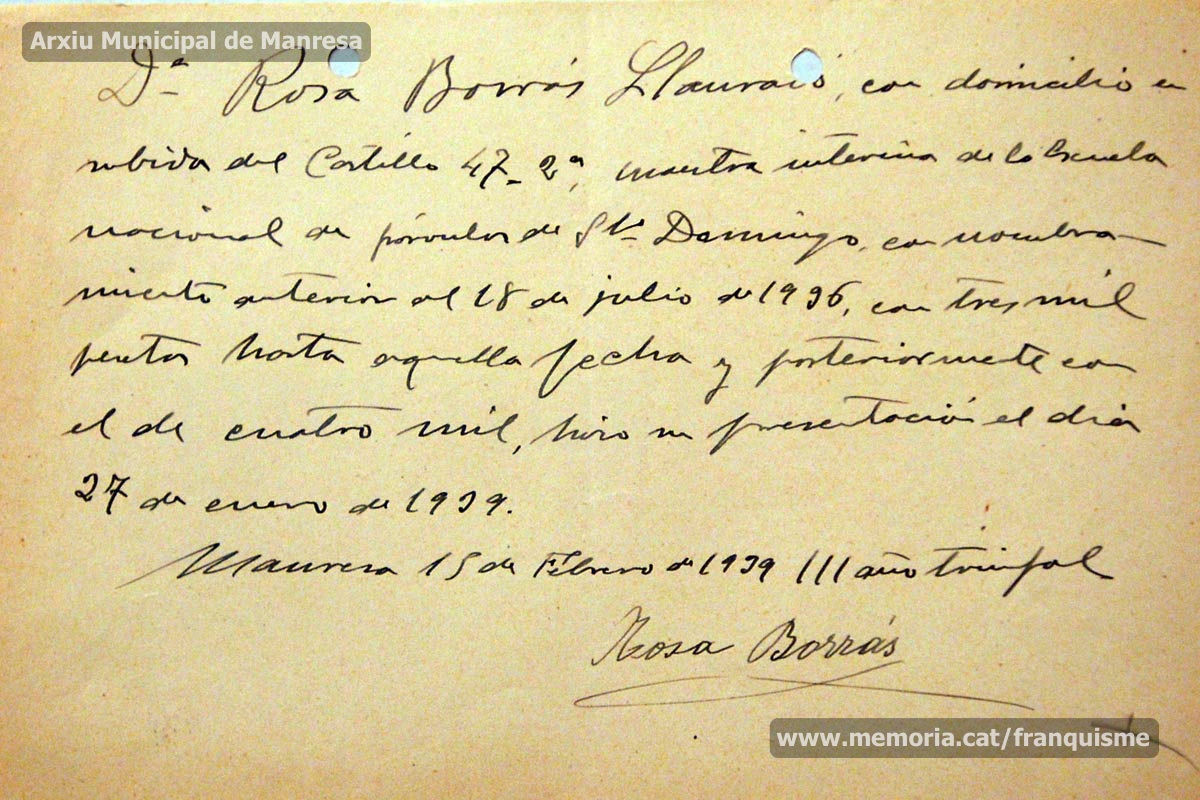 Arxiu Municipal de Manresa
Dª Rosa Borrás Llauradó, con domicilio en
subida del Castillo 47-2ª, maestra interina de la Escuela
nacional de párvulos de Stº Domingo, con nombra-
miento anterior al 18 de julio de 1936, con tres mil
pesetas hasta aquella fecha y posteriormente con
el de cuatro mil, hizo su presentación el dia
27 de enero de 1939.
Manresa 15 de Febrero de 1939 III año triunfal
Rosa Borrás
www.memoria.cat/franquisme